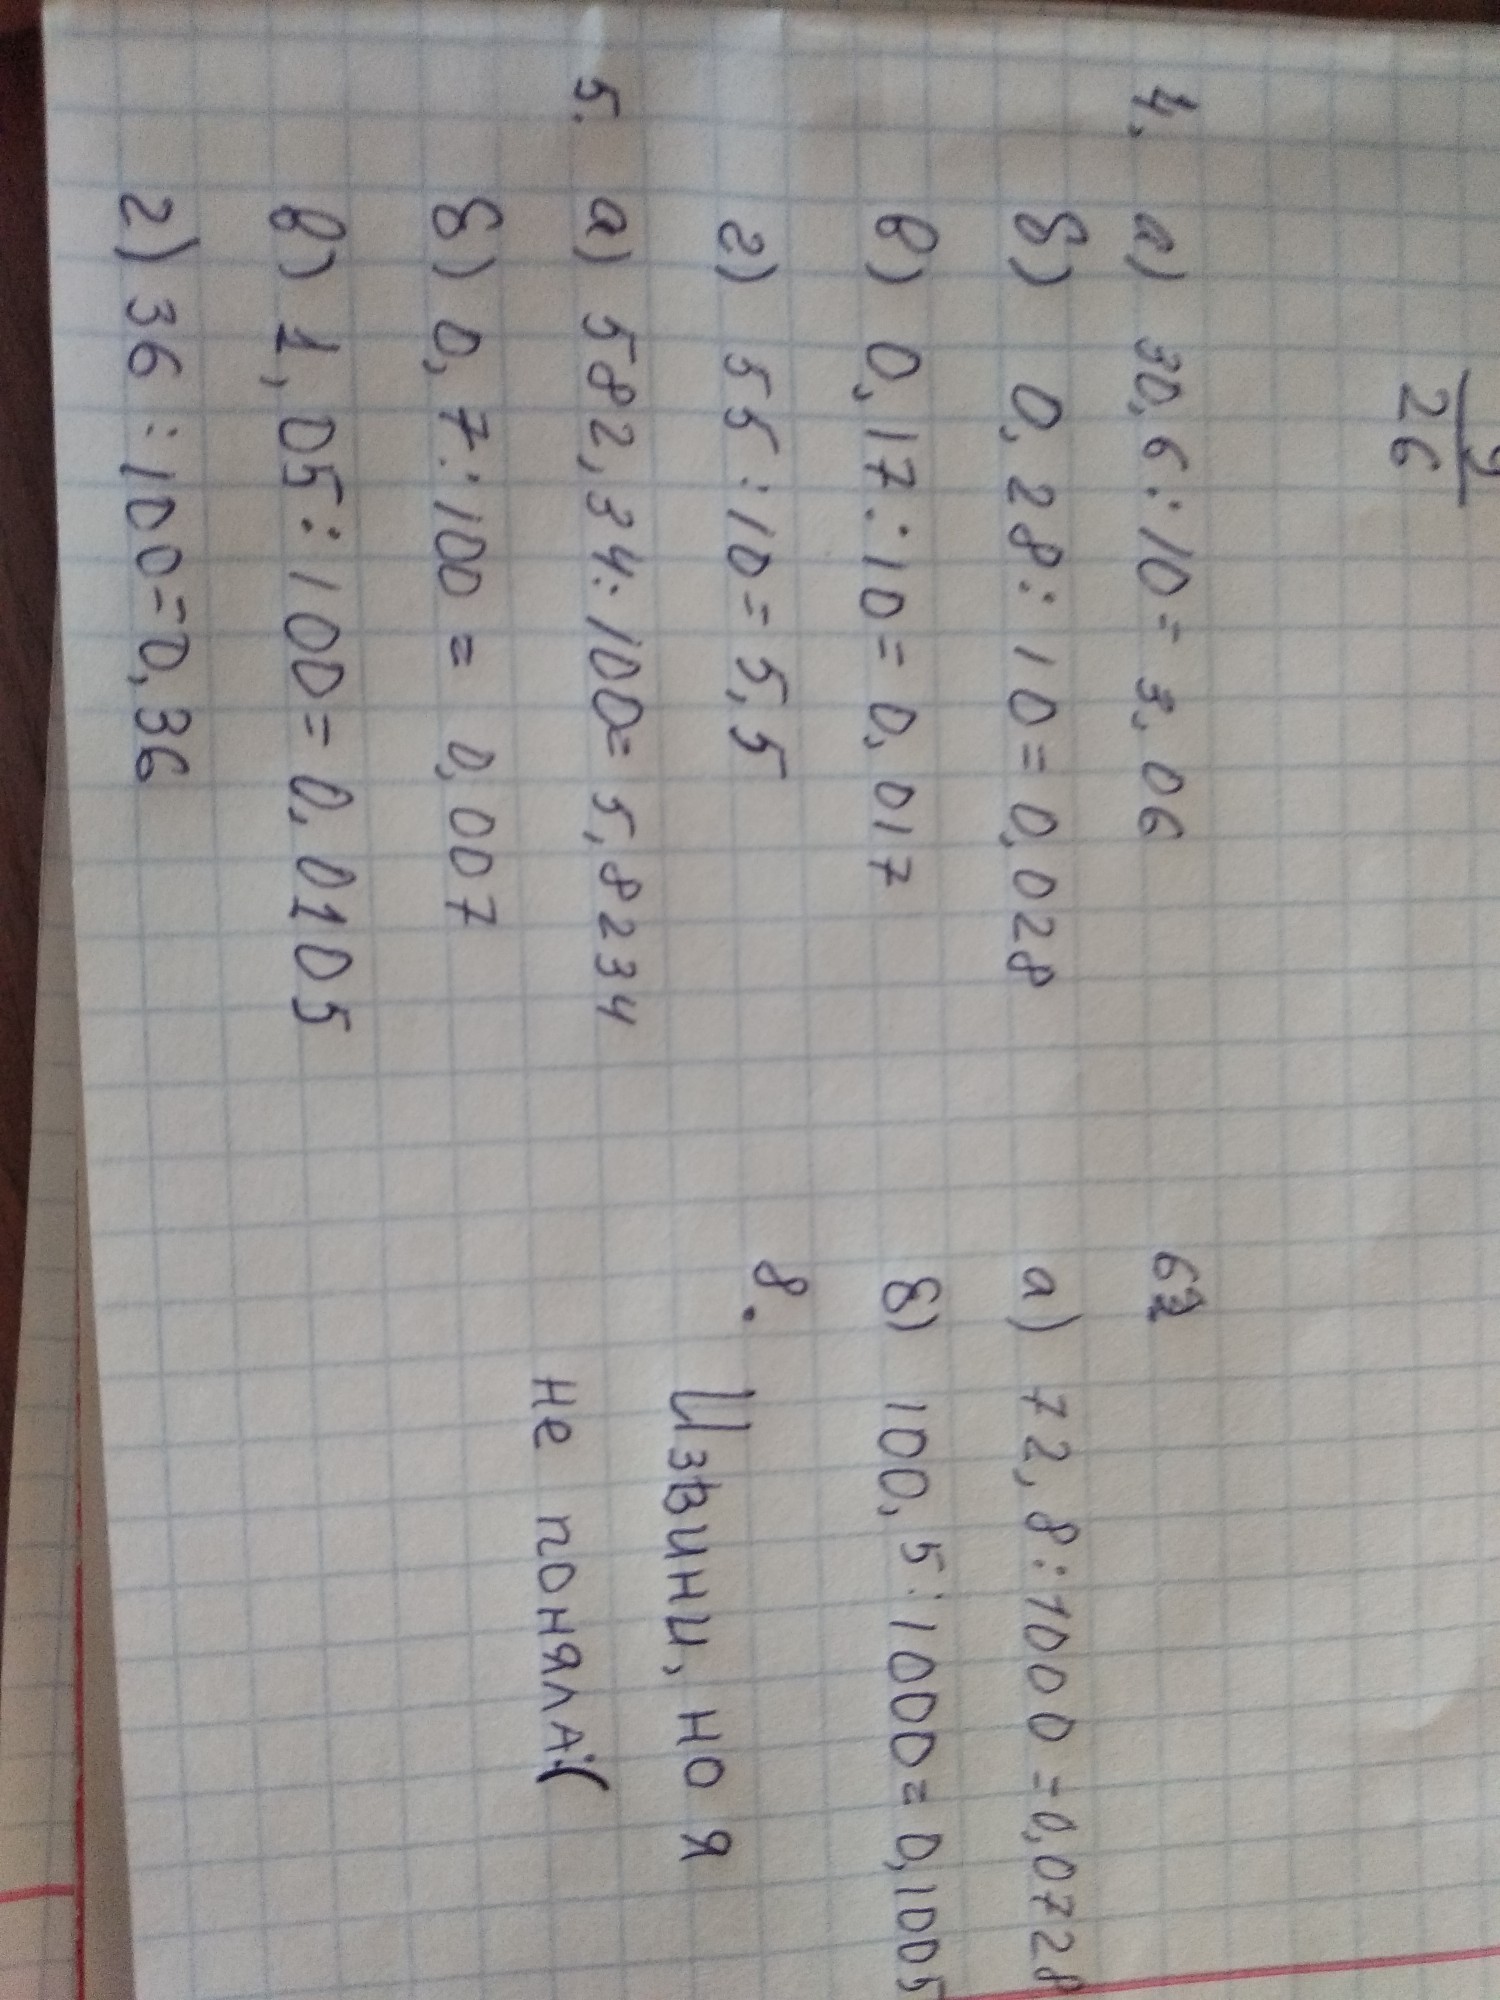 26
4. а) 30,6:10=3,06
б) 0,28:10=0,028
в) 0,17:10=0,017
г) 55:10=5,5
5. а) 582,34:100=5,8234
б) 0,7:100=0,007
в) 1,05:100=0,0105
г) 36:100=0,36
а) 72,8:1000=0,0728
б) 100,5:1000=0,1005
8.
Извини, но я
не поняла:(